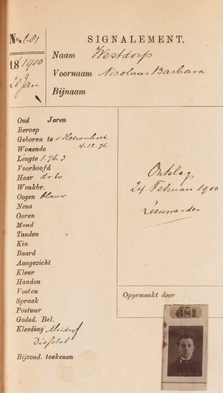 No. 681
SIGNALEMENT.
18 1900
20 Jan
Naam Westdorp
Voornaam Nicolaas Barbara
Bijnaam
Oud Jaren
Beroep
Geboren te
4.12.76
Wonende
Lengte 1.763
Voorhoofd
Haar d. br
Wenkbr.
Oogen blauw
Neus
Ooren
Mond
Tanden
Kin
Baard
Aangezicht
Kleur
Handen
Voeten
Spraak
Postuur
Godsd. Bel.
Kleeding
Diefstal
Bijzond. teekenen
Ontslag
24 Februari 1900
Leeuwarden
Opgemaakt door
681